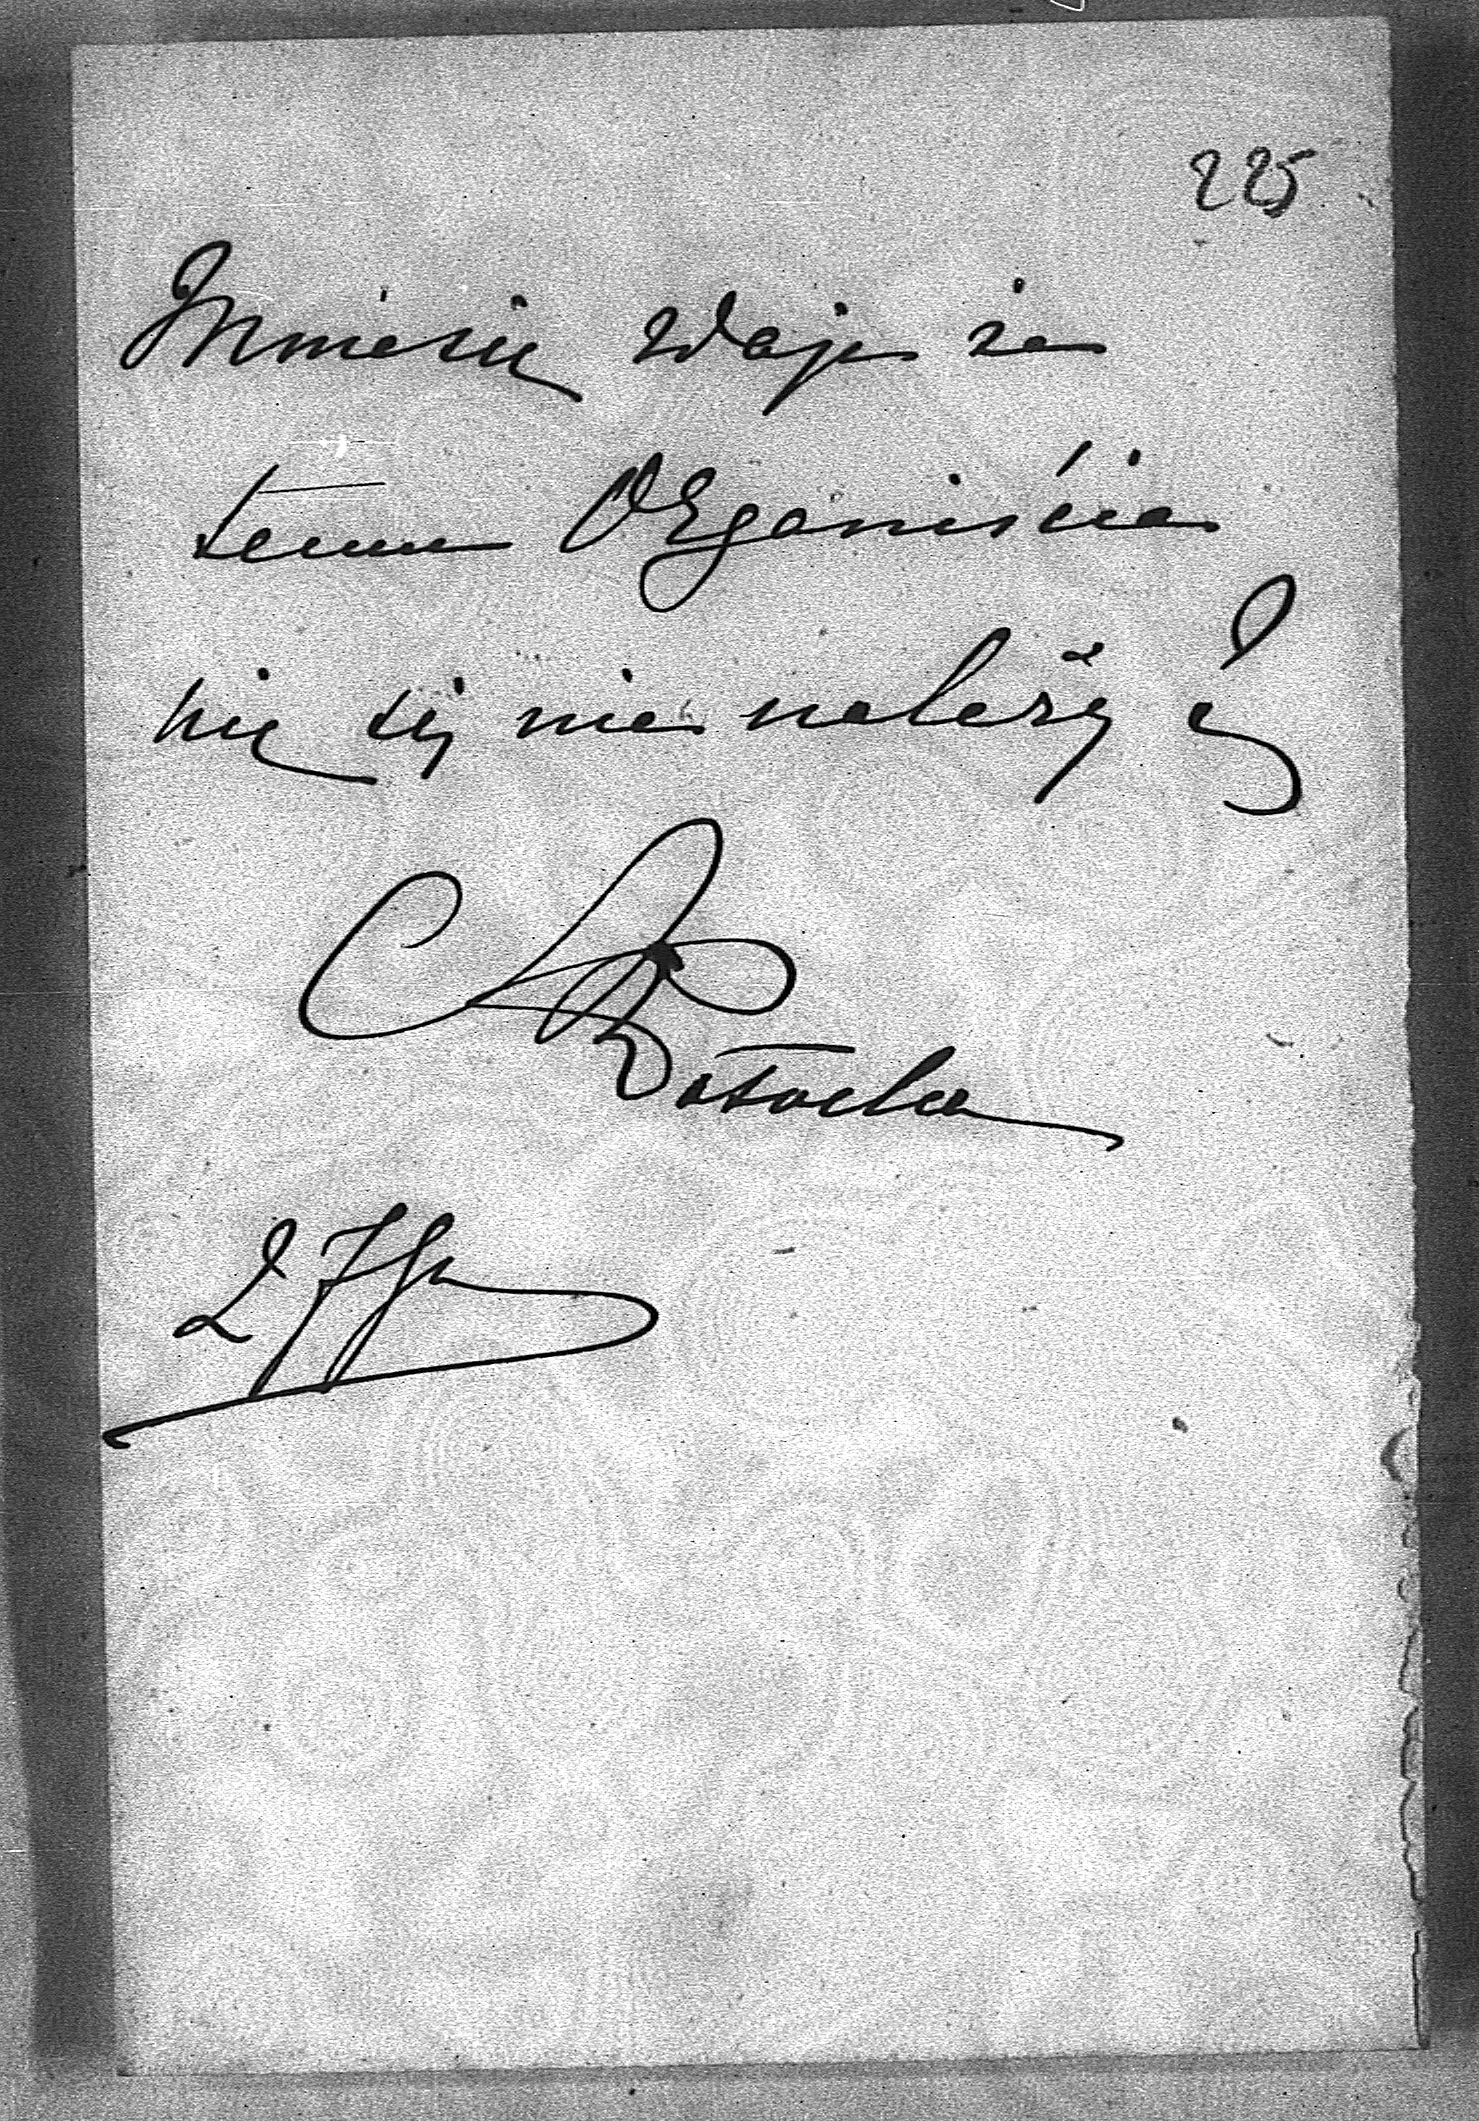 225
Mnie się zdaje że
temu Organiście
nic się nie należy
Rotocka
27/